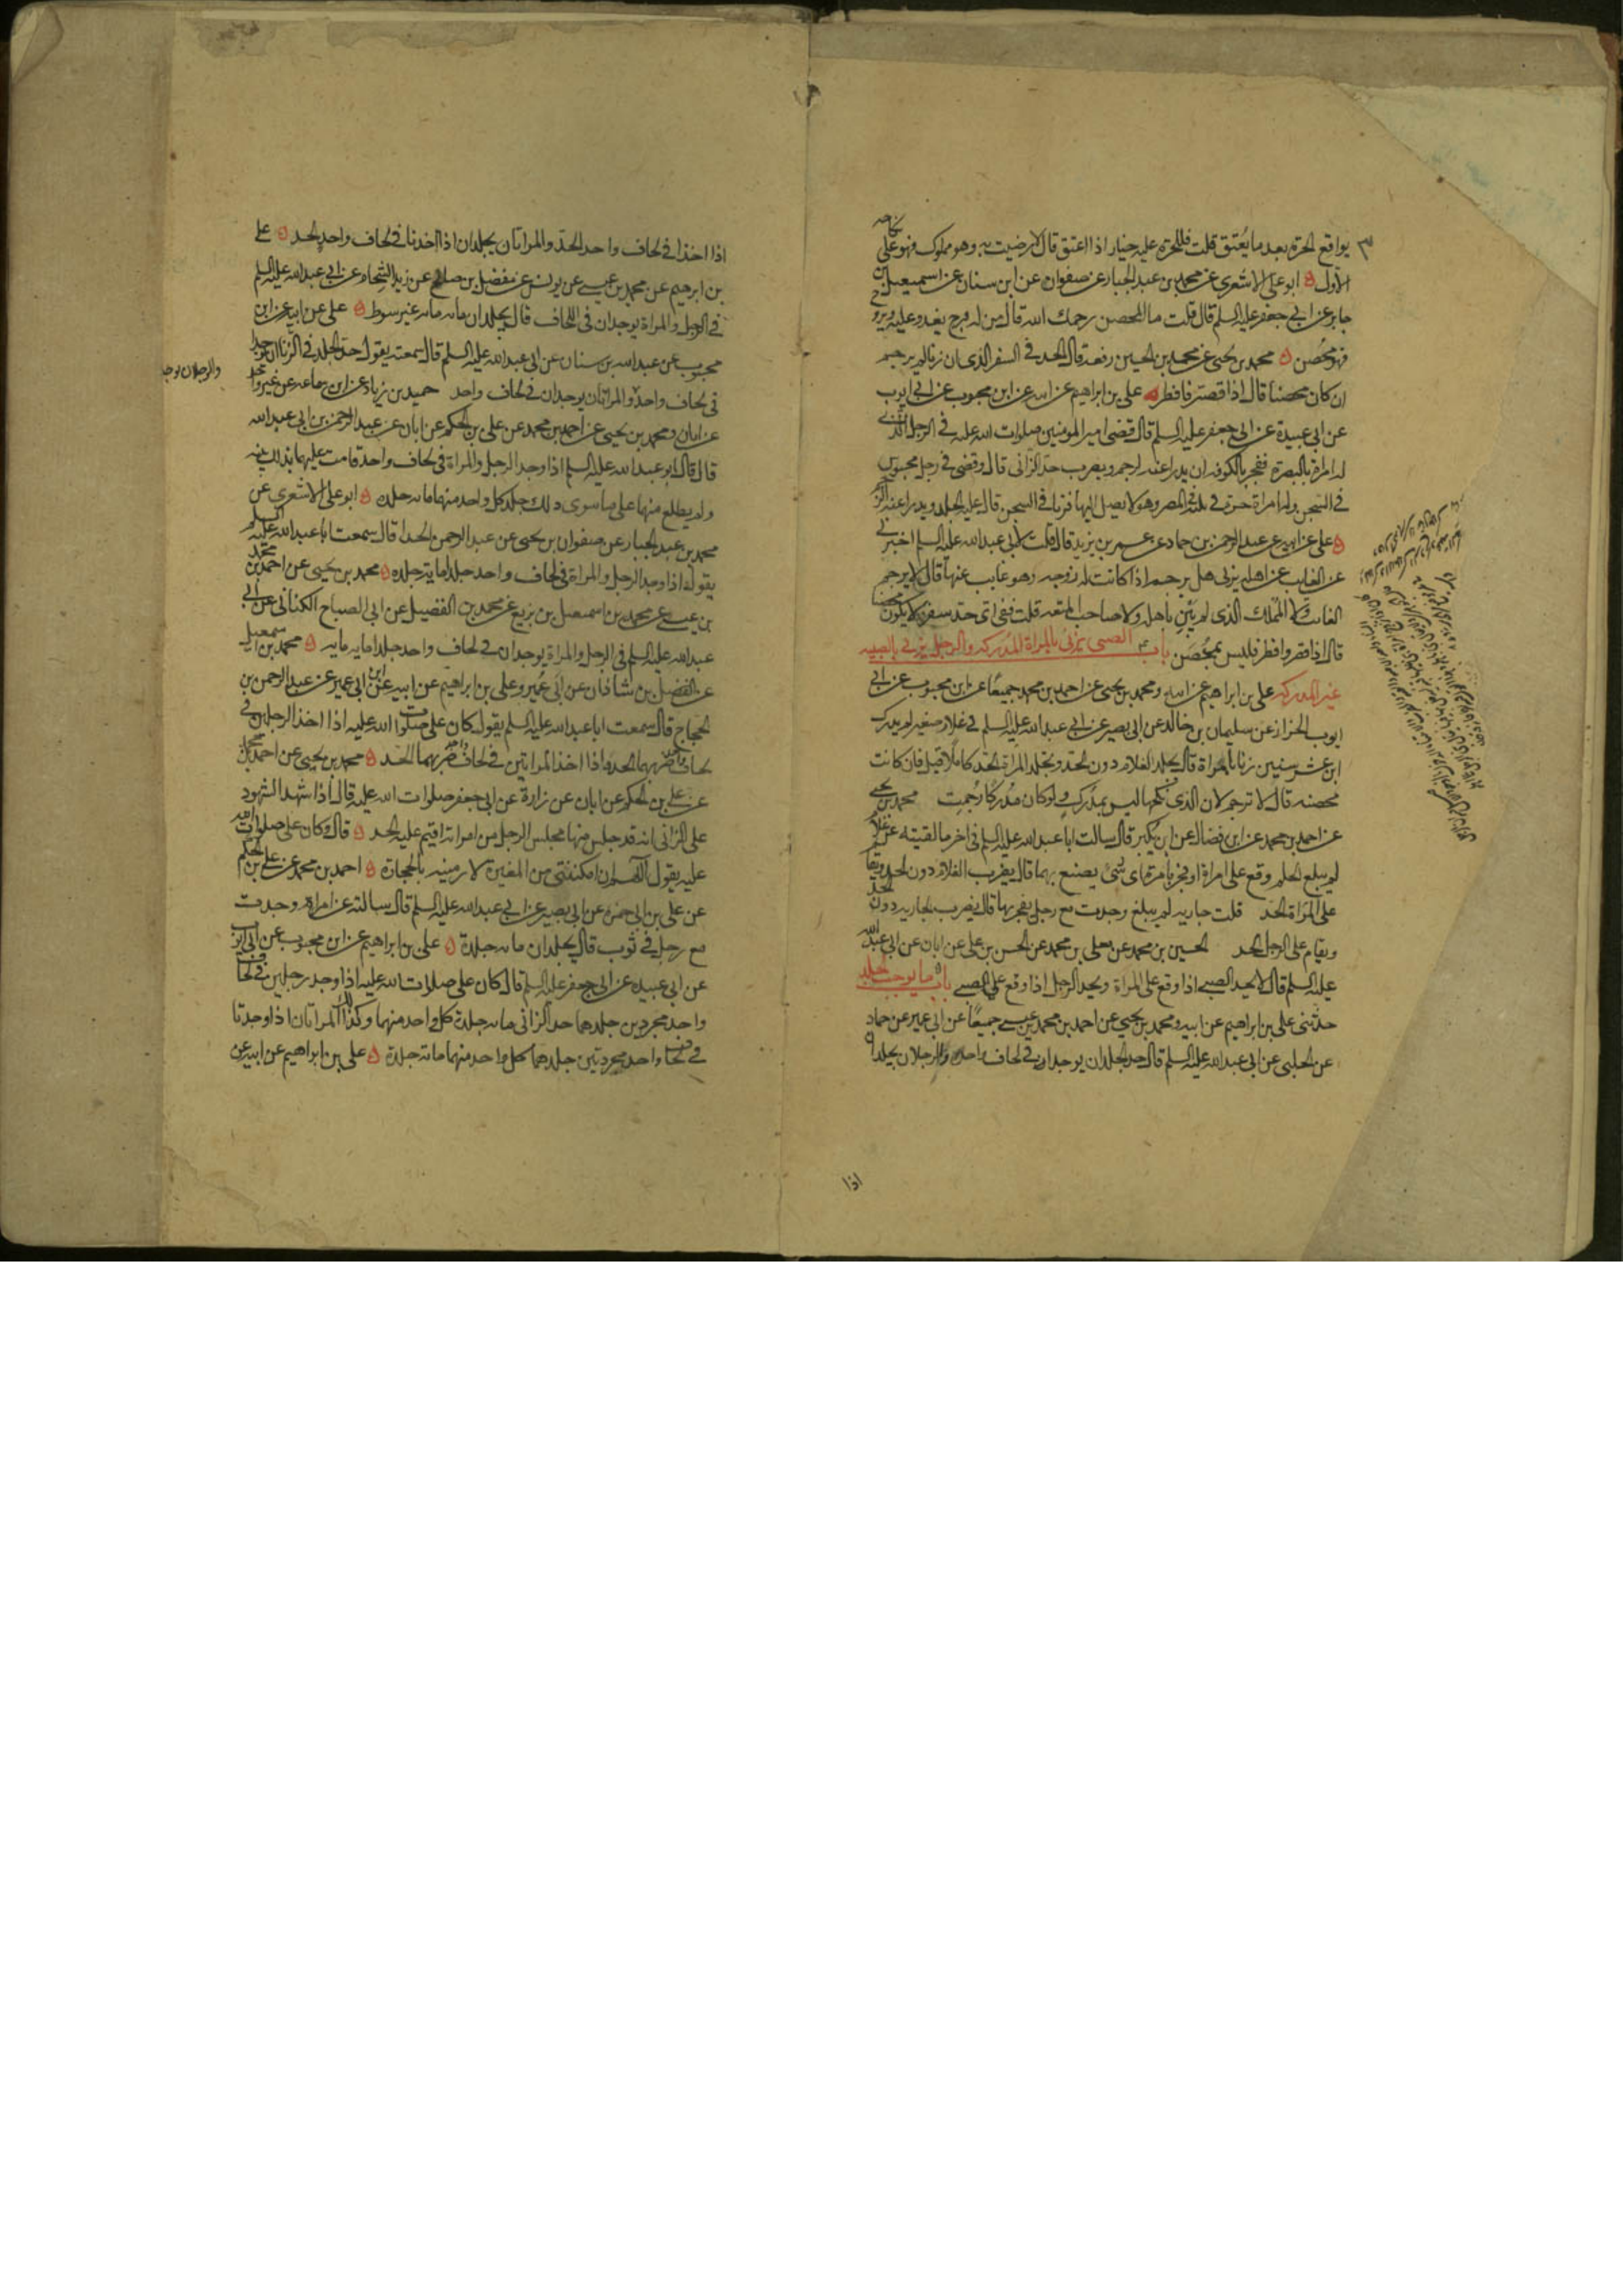 يواقع الحرة بعد ما يعتق قلت فللحرة عليه خيار اذا اعتق قال لا رضيت به وهو مملوك فهو على نكاحه
الاول ابو على الاشعرى عن محمد بن عبد الجبار عن صفوان عن ابن سنان عن اسمعيل بن
جابر عن ابي جعفر عليه السلم قال قلت ما المحصن رحمك الله قال من له فرج يغدو عليه ويروح
فهو محصن محمد بن يحيى عن محمد بن الحسين رفعه قال الحد في السفر الذى ان زنا لم يرجم
ان كان محصنا قال اذا قصر فافطر على بن ابراهيم عن ابيه عن ابن محبوب عن ابي ايوب
عن ابي عبيدة عن ابي جعفر عليه السلم قال قضى امير المومنين صلوات الله عليه في الرجل الذي
له امراة بالبصرة ففجر بالكوفه ان يدرا عنه الرجم ويضرب حد الزانى قال وقضى في رجل محبوس
في السجن وله امراة حرة في بيته في المصر وهو لا يصل اليها فزنا في السجن قال عليه الجلد ويدرا عنه الرجم
على عن ابيه عن عبد الرحمن بن حماد عن عمر بن يزيد قال قلت لابي عبد الله عليه السلم اخبرني
عن الغايب عن اهله يزنى هل يرجم اذا كانت له زوجه وهو غايب عنها قال لا يرجم
الغائب ولا المملك الذى لم يبن باهله ولا صاحب المتعه قلت ففى اى حد سفره لا يكون محصنا
قال اذا قصر وافطر فليس بمحصن باب الصبى يزنى بالمراة المدركه والرجل يزنى بالصبيه
غير المدركه على بن ابراهيم عن ابيه ومحمد بن يحيى عن احمد بن محمد جميعا عن ابن محبوب عن ابي
ايوب الخزاز عن سليمان بن خالد عن ابي بصير عن ابي عبد الله عليه السلم في غلام صغير لم يدرك
ابن عشر سنين زنا بامراة قال يجلد الغلام دون الحد وتجلد المراة الحد كاملا قيل فان كانت
محصنه قال لا ترجم لان الذى نكحها ليس بمدرك ولو كان مدركا رجمت محمد بن يحيى
عن احمد بن محمد عن ابن فضال عن ابن بكير قال سالت ابا عبد الله عليه السلم في اخر ما لقيته عن غلام
لم يبلغ الحلم وقع على امراة او فجر بامراة اى شئ يصنع بهما قال يضرب الغلام دون الحد ويقام
على المراة الحد قلت جاريه لم يبلغ وجدت مع رجل يفجر بها قال يضرب الجاريه دون الحد
ويقام على الرجل الحد الحسين بن محمد عن معلى بن محمد عن الحسن بن على عن ابان عن ابي عبد الله
عليه السلم قال لا يحد الصبى اذا وقع على المراة ويحد الرجل اذا وقع على الصبى باب ما يوجب الجلد
حدثنى على بن ابراهيم عن ابيه ومحمد بن يحيى عن احمد بن محمد بن عيسى جميعا عن ابي عمير عن حماد
عن الحلبى عن ابي عبد الله عليه السلم قال حد الجلد ان يوجدا في لحاف واحد والرجلان يجلدان
اذا
اذا اخذا في لحاف واحد الحد والمراتان يجلدان اذا اخذتا في لحاف واحد الحد على
بن ابرهيم عن محمد بن عيسى عن يونس عن مفضل بن صالح عن زيد الشحام عن ابي عبد الله عليه السلم
في الرجل والمراة يوجدان في اللحاف قال يجلدان مائه مائه غير سوط على عن ابيه عن ابن
محبوب عن عبد الله بن سنان عن ابي عبد الله عليه السلم قال سمعته يقول حد الجلد في الزنا ان يوجدا
والرجلان يوجدا
في لحاف واحد والمراتان يوجدان في لحاف واحد حميد بن زياد عن ابن سماعه عن غير واحد
عن ابان ومحمد بن يحيى عن احمد بن محمد عن على بن الحكم عن ابان عن عبد الرحمن بن ابي عبد الله
قال قال ابو عبد الله عليه السلم اذا وجد الرجل والمراة في لحاف واحد قامت عليهما بذلك بينه
ولم يطلع منهما على ما سوى ذلك جلد كل واحد منهما مائه جلده ابو على الاشعري عن
محمد بن عبد الجبار عن صفوان بن يحيى عن عبد الرحمن الحذا قال سمعت ابا عبد الله عليه السلم
يقول اذا وجد الرجل والمراة في لحاف واحد جلدا مايه جلده محمد بن يحيى عن احمد بن محمد
بن عيسى عن محمد بن اسمعيل بن بزيع عن محمد بن الفضيل عن ابي الصباح الكنانى عن ابي
عبد الله عليه السلم في الرجل والمراة يوجدان في لحاف واحد جلدا مايه مايه محمد بن اسمعيل
عن الفضل بن شاذان عن ابي عمير وعلى بن ابراهيم عن ابيه عن ابن ابي عمير عن عبد الرحمن بن
الحجاج قال سمعت ابا عبد الله عليه السلم يقول كان على صلوات الله عليه اذا اخذ الرجلين في
لحاف واحد ضربهما الحد واذا اخذ المراتين في لحاف واحد ضربهما الحد محمد بن يحيى عن احمد بن محمد
عن على بن الحكم عن ابان عن زرارة عن ابي جعفر صلوات الله عليه قال اذا شهد الشهود
على الزانى انه قد جلس منها مجلس الرجل من امراته اقيم عليه الحد قال وكان على صلوات الله
عليه يقول اللهم ان امكنتنى من المغيرة لارمينه بالحجارة احمد بن محمد عن على بن الحكم
عن على بن ابي حمزه عن ابي بصير عن ابي عبد الله عليه السلم قال سالته عن امراة وجدت
مع رجل في ثوب قال يجلدان مائه جلدة على بن ابراهيم عن ابن محبوب عن ابي ايوب
عن ابي عبيده عن ابي جعفر عليه السلم قال كان على صلوات الله عليه اذا وجد رجلين في لحاف
واحد مجردين جلدهما حد الزانى مائه جلدة كل واحد منهما وكذلك المراتان اذا وجدتا
في لحاف واحد مجردتين جلدهما كل واحد منهما مائه جلدة على بن ابراهيم عن ابيه عن